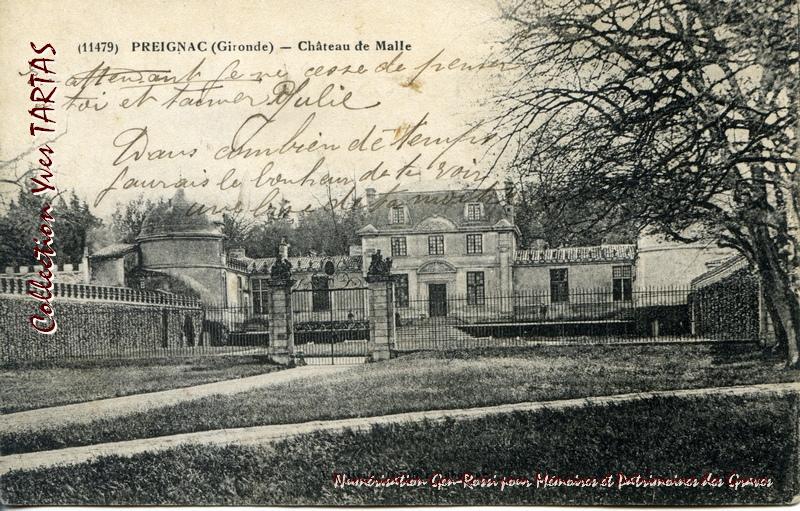 (11479) PREIGNAC (Gironde) — Château de Malle
attendant je ne cesse de penser
toi et t'aimer Julie
Dans combien de temps
jaurais le bonheur de te voir
une
de ta
Collection Yves TARTAS
Numérisation Gen-Rossi pour Mémoires et Patrimoines des Graves